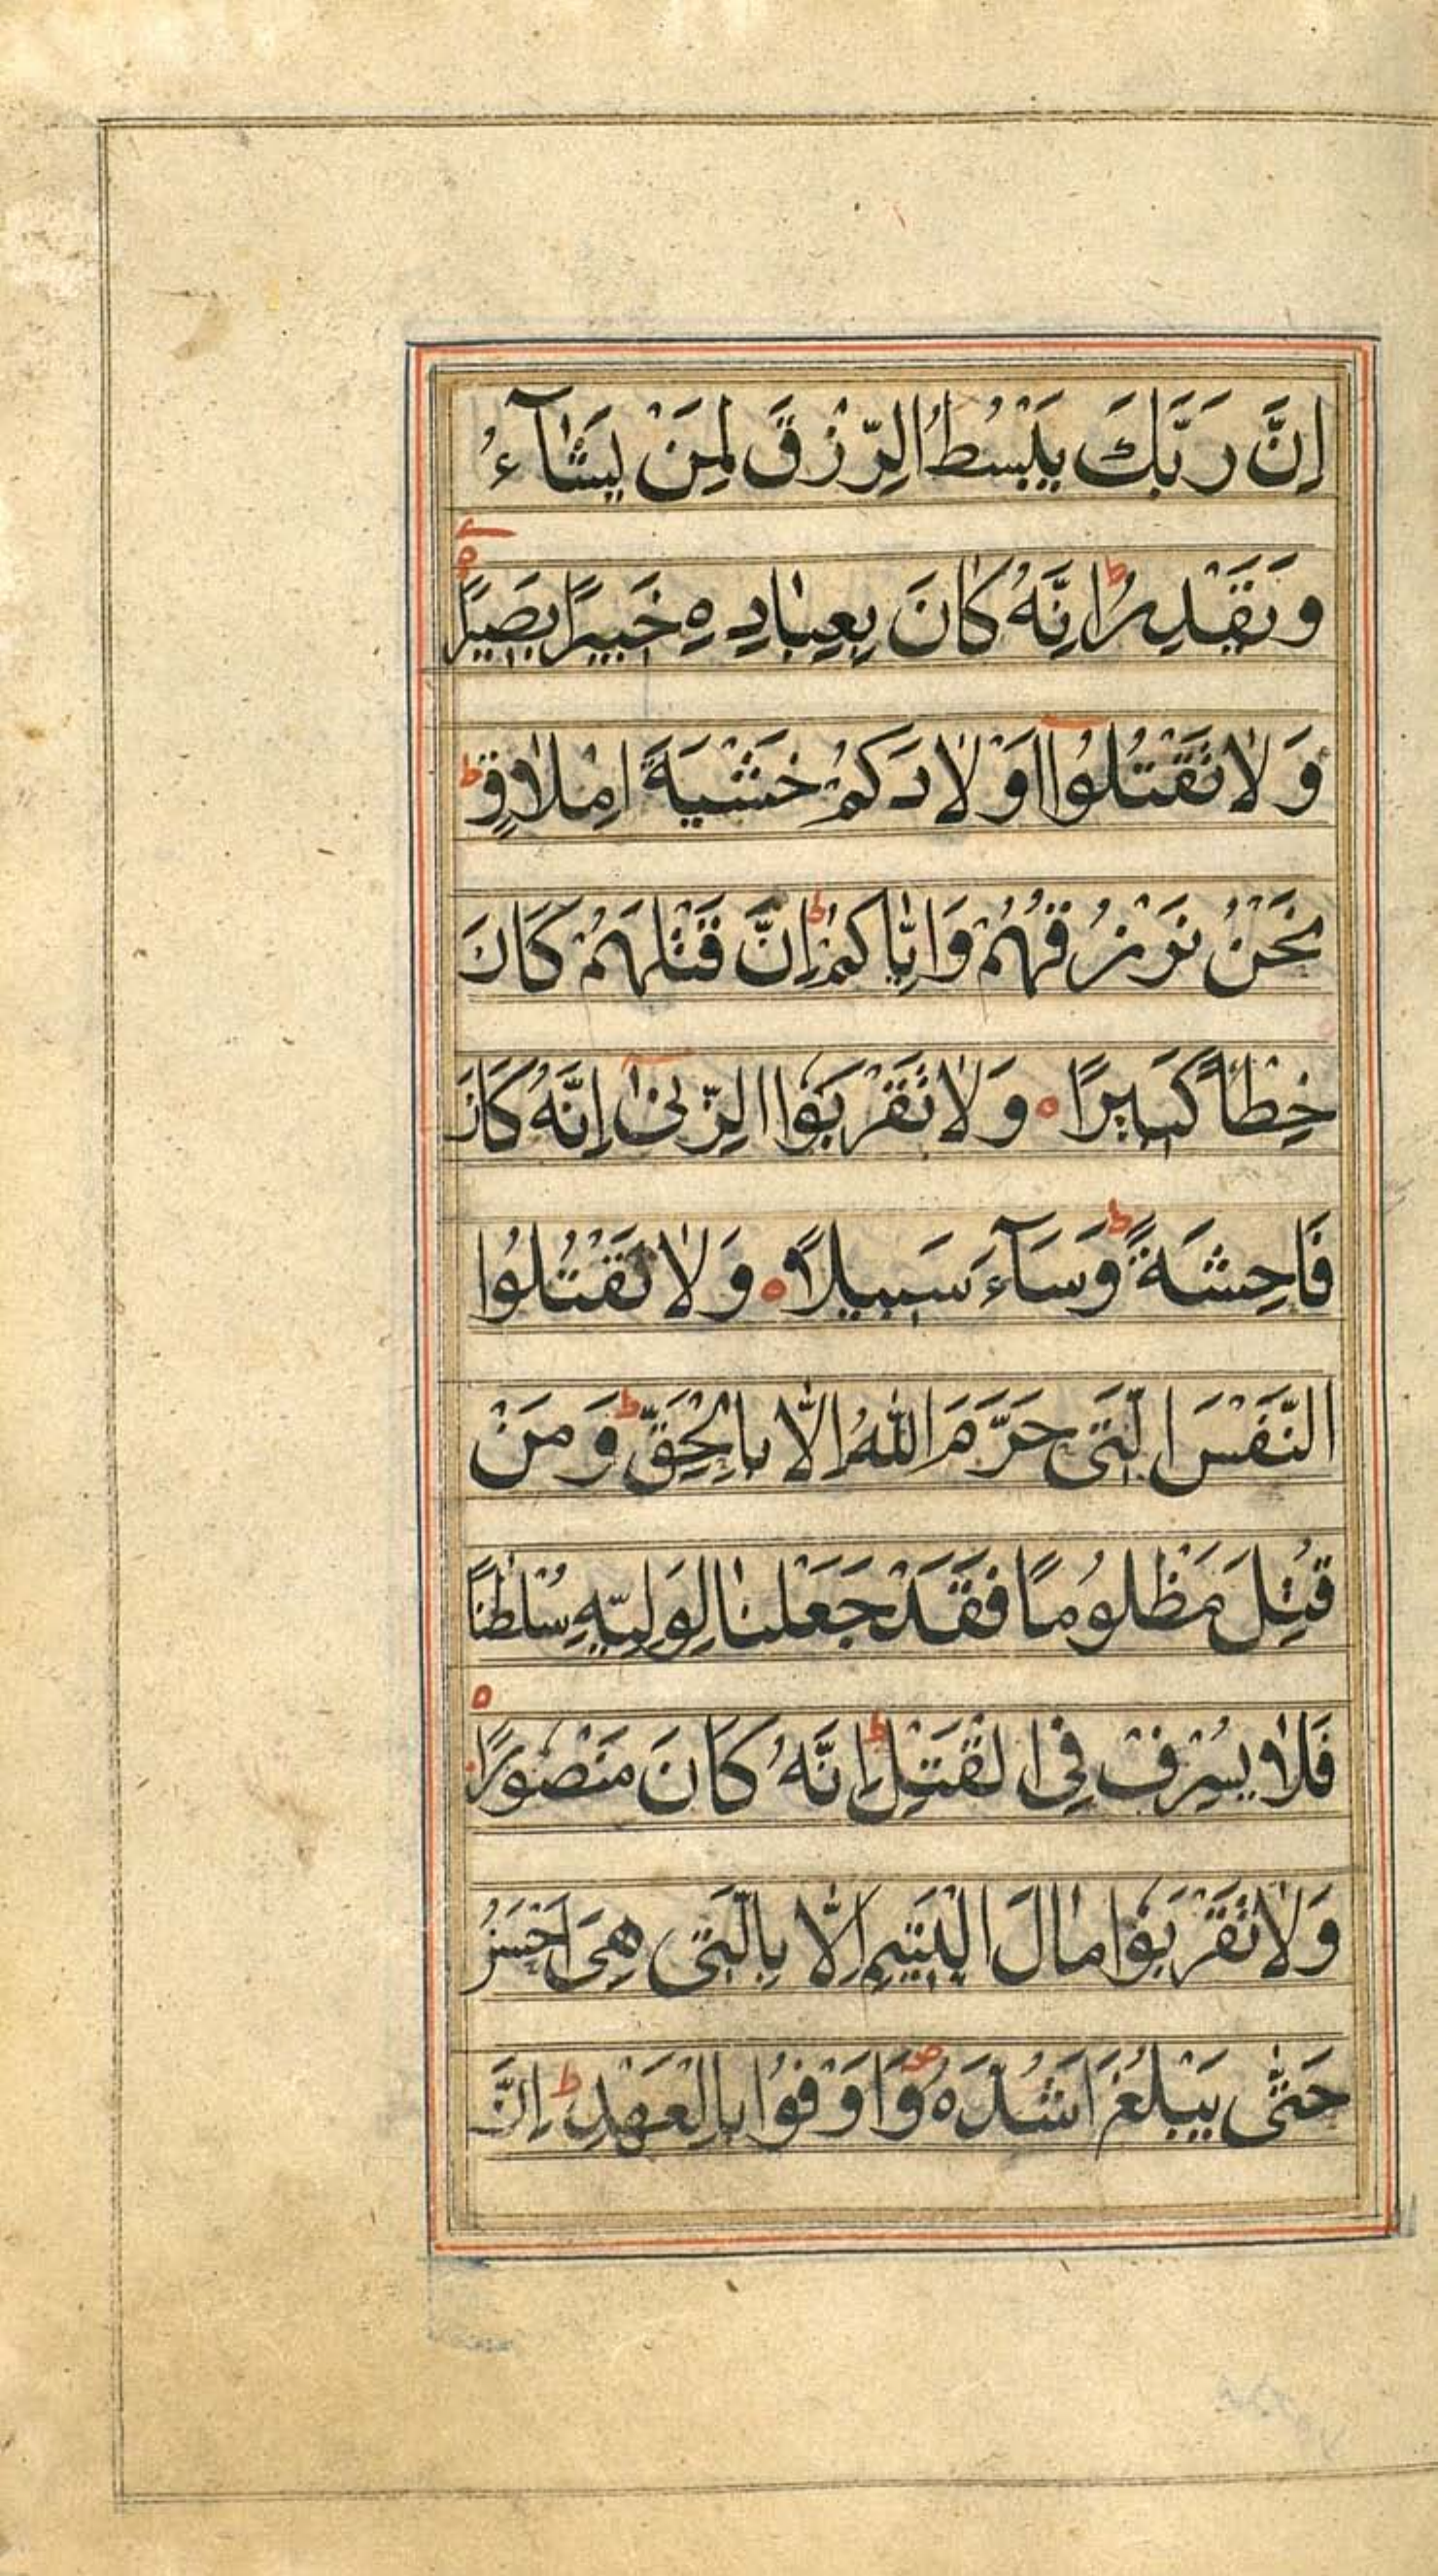 اِنَّ رَبَّكَ يَبْسُطُ الرِّزْقَ لِمَنْ يَشَآءُ
وَيَقْدِرُ ط اِنَّهُ كَانَ بِعِبَادِهِ خَبِيرًا بَصِيرًا ه
وَلَا تَقْتُلُوا اَوْلَادَكُمْ خَشْيَةَ اِمْلَاقٍ ط
نَحْنُ نَرْزُقُهُمْ وَاِيَّاكُمْ ط اِنَّ قَتْلَهُمْ كَانَ
خِطْأً كَبِيرًا ه وَلَا تَقْرَبُوا الزِّنٰى اِنَّهُ كَانَ
فَاحِشَةً ط وَسَآءَ سَبِيلًا ه وَلَا تَقْتُلُوا
النَّفْسَ الَّتِى حَرَّمَ اللّٰهُ اِلَّا بِالْحَقِّ ط وَمَنْ
قُتِلَ مَظْلُومًا فَقَدْ جَعَلْنَا لِوَلِيِّهِ سُلْطٰنًا
فَلَا يُسْرِفْ فِى الْقَتْلِ ط اِنَّهُ كَانَ مَنْصُورًا ه
وَلَا تَقْرَبُوا مَالَ الْيَتِيمِ اِلَّا بِالَّتِى هِىَ اَحْسَنُ
حَتّٰى يَبْلُغَ اَشُدَّهُ ص وَاَوْفُوا بِالْعَهْدِ ط اِنَّ